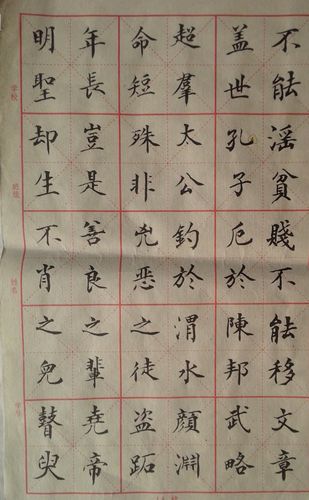 不能淫貧賤不能移文章
盖世孔子厄於陳邦武略
超羣太公釣於渭水顏淵
命短殊非兇恶之徒盗跖
年長豈是善良之輩堯帝
明聖却生不肖之兒瞽叟
学校
班级
姓名